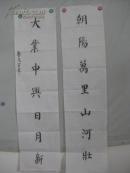 朝陽萬里山河壯
大業中興日月新